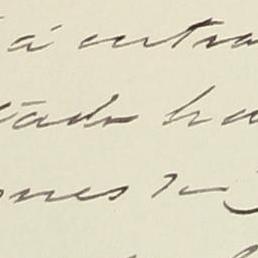 á entra
tado ha
ones de